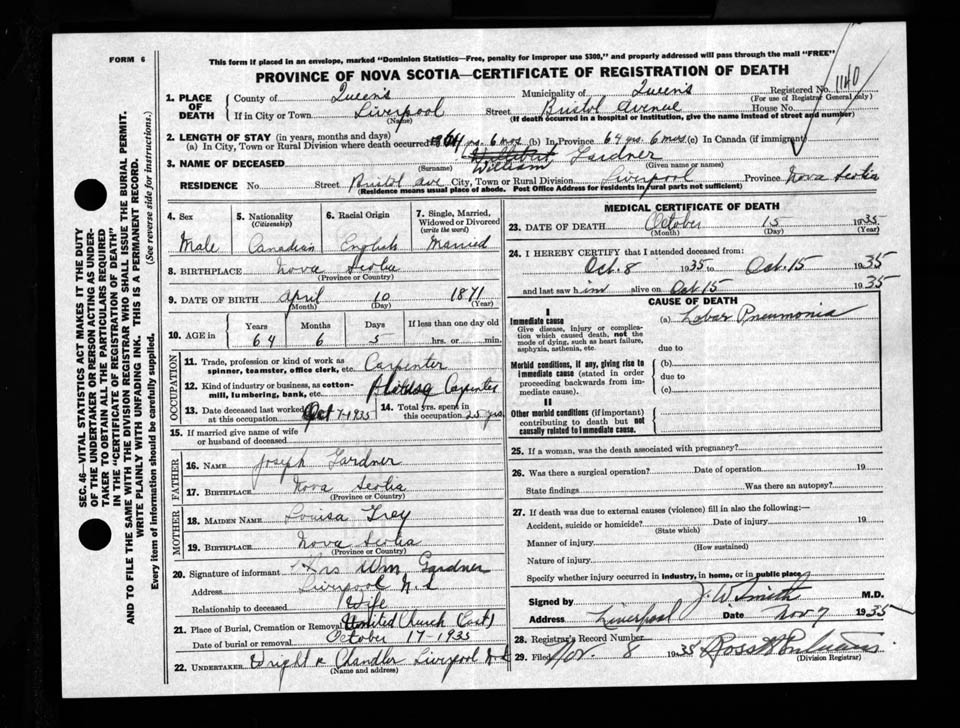 FORM 6
This form if placed in an envelope, marked "Dominion Statistics—Free, penalty for improper use $300," and properly addressed will pass through the mail "FREE"
PROVINCE OF NOVA SCOTIA—CERTIFICATE OF REGISTRATION OF DEATH
1140
SEC. 46—VITAL STATISTICS ACT MAKES IT THE DUTY
OF THE UNDERTAKER OR PERSON ACTING AS UNDER-
TAKER TO OBTAIN ALL THE PARTICULARS REQUIRED
IN THE "CERTIFICATE OF REGISTRATION OF DEATH"
AND TO FILE THE SAME WITH THE DIVISION REGISTRAR WHO SHALL ISSUE THE BURIAL PERMIT.
WRITE PLAINLY WITH UNFADING INK. THIS IS A PERMANENT RECORD.
Every item of information should be carefully supplied. (See reverse side for instructions.)
1. PLACE OF DEATH County of Queens Municipality of Queens Registered No.
(For use of Registrar General only)
If in City or Town Liverpool Street Bristol Avenue House No.
(Name) (If death occurred in a hospital or institution, give the name instead of street and number)
2. LENGTH OF STAY (in years, months and days)
(a) In City, Town or Rural Division where death occurred 64 yrs. 6 mos (b) In Province 64 yrs. 6 mos (c) In Canada (if immigrant)
3. NAME OF DECEASED William Gardner
(Surname) (Given name or names)
RESIDENCE No. Street Bristol Ave City, Town or Rural Division Liverpool Province Nova Scotia
(Residence means usual place of abode. Post Office Address for residents in rural parts not sufficient)
4. Sex
Male
5. Nationality
(Citizenship)
Canadian
6. Racial Origin
English
7. Single, Married,
Widowed or Divorced
(write the word)
Married
8. BIRTHPLACE Nova Scotia
(Province or Country)
9. DATE OF BIRTH April 10 1871
(Month) (Day) (Year)
10. AGE in Years Months Days If less than one day old
64 6 5 hrs. or min.
OCCUPATION
11. Trade, profession or kind of work as
spinner, teamster, office clerk, etc. Carpenter
12. Kind of industry or business, as cotton-
mill, lumbering, bank, etc. House Carpenter
13. Date deceased last worked
at this occupation Oct 7-1935
14. Total yrs. spent in
this occupation 25 yrs
15. If married give name of wife
or husband of deceased
FATHER
16. NAME Joseph Gardner
17. BIRTHPLACE Nova Scotia
(Province or Country)
MOTHER
18. MAIDEN NAME Louisa
19. BIRTHPLACE Nova Scotia
(Province or Country)
20. Signature of informant Mrs Wm Gardner
Address Liverpool N.S
Relationship to deceased Wife
21. Place of Burial, Cremation or Removal United Church
Date of burial or removal October 17-1935
22. UNDERTAKER Wright & Chandler Liverpool N.S
(Name and address)
MEDICAL CERTIFICATE OF DEATH
23. DATE OF DEATH October 15 1935
(Month) (Day) (Year)
24. I HEREBY CERTIFY that I attended deceased from:
Oct. 8 1935 to Oct. 15 1935
and last saw him alive on Oct 15 1935
CAUSE OF DEATH
I
Immediate cause
Give disease, injury or complica-
tion which caused death, not the
mode of dying, such as heart failure,
asphyxia, asthenia, etc.
(a) Lobar Pneumonia
due to
Morbid conditions, if any, giving rise to
immediate cause (stated in order
proceeding backwards from im-
mediate cause).
(b)
due to
(c)
II
Other morbid conditions (if important)
contributing to death but not
causally related to immediate cause.
25. If a woman, was the death associated with pregnancy?
26. Was there a surgical operation? Date of operation 19
State findings Was there an autopsy?
27. If death was due to external causes (violence) fill in also the following:—
Accident, suicide or homicide? Date of injury 19
(State which)
Manner of injury
(How sustained)
Nature of injury
Specify whether injury occurred in industry, in home, or in public place
Signed by J. W. Smith M.D.
Address Liverpool Date Nov 7 1935
28. Registrar's Record Number
29. Filed Nov. 8 1935 Ross
(Division Registrar)